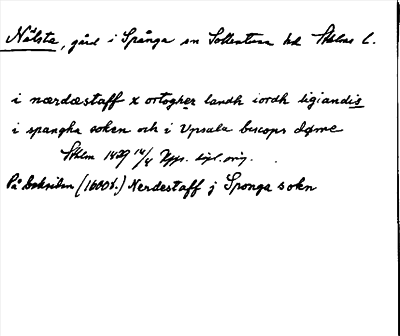 Nälsta, gård i Spånga sn Sollentuna hd Sthlms l.
i nærdæstaff x ortogher landh iordh ligiandis
i spangha sokn och i Vpsala biscops døme
Sthlm 1429 14/4 Upps. sigl. orig.
På baksidan (1600t.) Nerdestaff j Sponga sokn